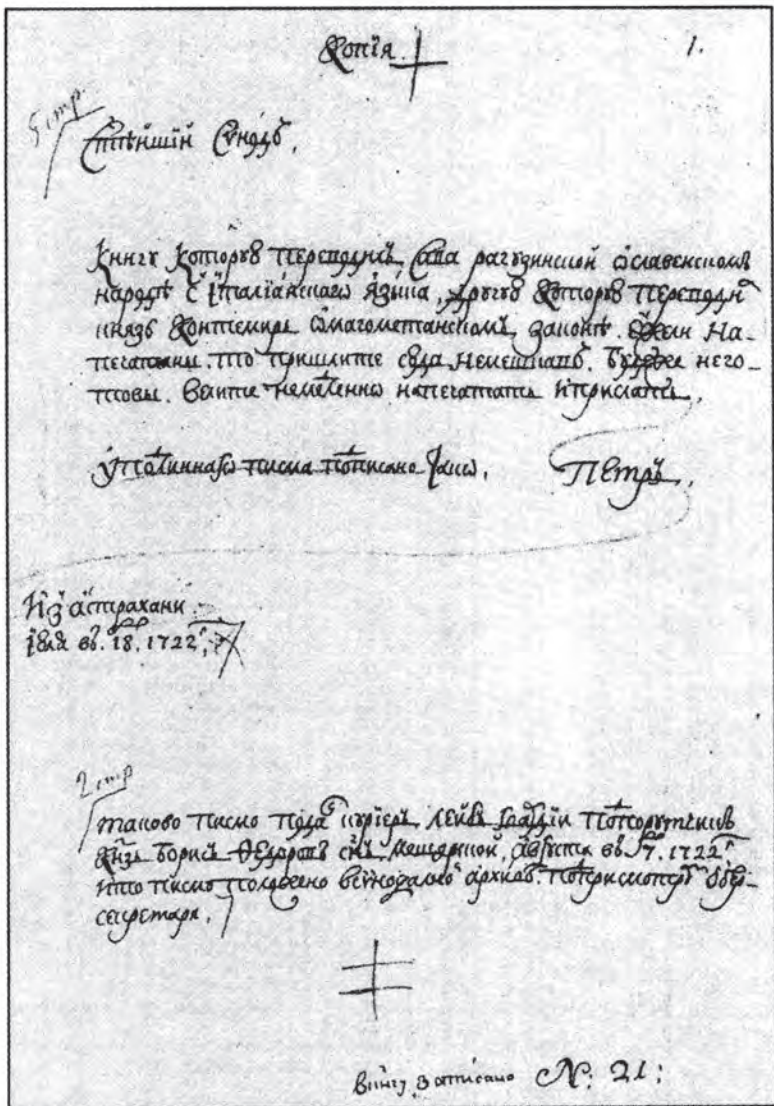 Копїя
1.
5 стр.
Стѣишїи Сѵнодъ,
книгу которую переводилъ Сава рагузинскои ѡ славенскомъ
народѣ с ыталїанскаго языка, другую которую переводи
князь контемиръ ѡ магометанскомъ законѣ. ежели на-
печатаны. то пришлите сюда немешкавъ. будеже него-
товы. велите немедленно напечатать и прислать,
У подлиннаго писма подписано тако, Петръ,
Из астрахани
їюля въ. 18. 1722,
2 стр
таково писмо пода курїеръ леибъ гвардїи подпорутчикъ
кнзь борисъ Ѳедоровъ снъ мещерскои, августа въ 7. 1722
и то писмо положено в сѵнодалнои архивъ. по присмотръ обер-
секретаря,
в книгу записано N: 21: